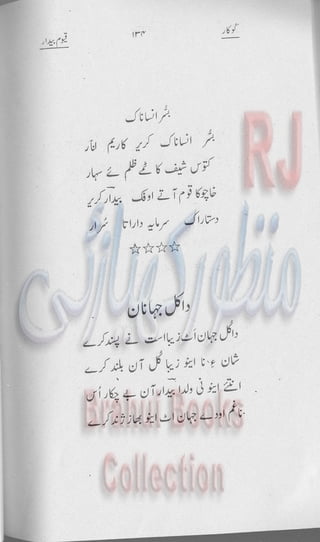 قیوم بیدار ۱۳۴ گوکار
بشر انسانانک
بشر انسانانک کریر کاریم اَنار
کتوس شیف کا ٹھے ظلم ئے سہار
خاچوکا قوم آتے اوفک بیدار کریر
دستاراک سرمایہ داراتا سُرار
☆☆☆☆
داکل جہانان
داکل جہان اٹ زیبا است نے پسند کرے
شان ءِ نا اینو زیبا گل آن بلند کرے
انتئے اینو نی ولدا بیدار آن بے چکار اُس
ناغم اودے جہان اٹ اینو بھاز ژند کرے
RJ
منظور کیازئی
Books
Collection